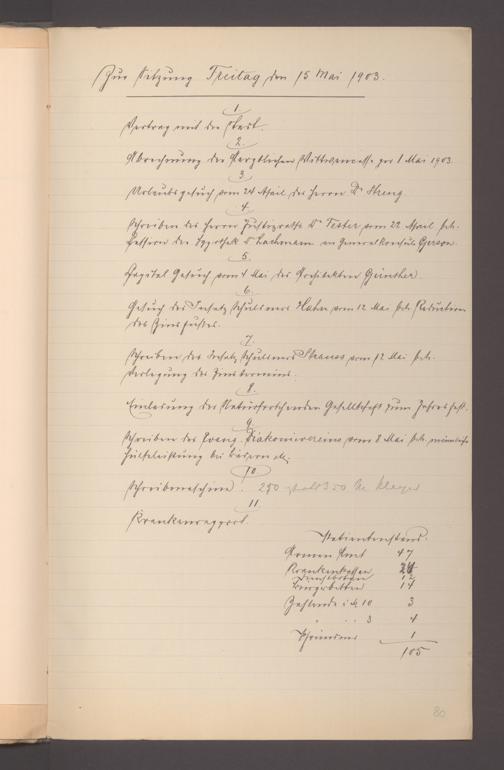 Zur Sitzung Freitag den 15 Mai 1903.
1.
Vertrag mit der Stadt.
2.
Abrechnung der Wittwencasse per 1 Mai 1903
3.
Urlaubsgesuch vom 24 April des Herrn Dr Streng
4.
Schreiben des Herrn Justizrath Dr Textor vom 22 April betr.
der Hypothek Dr Lachmann und Generalkonsul Gerson.
5.
Capital Gesuch vom 4 Mai des Architekten Günther.
6.
Gesuch des Insatz Schuldners Huber vom 12 Mai betr. Reduction
des Zinsfußes.
7.
Schreiben des Insatz Schuldners Strauss vom 12 Mai betr.
Verlegung des Zinstermins.
8.
Einladung der Naturforschenden Gesellschaft zum Jahresfest.
9.
Schreiben des Evang. Diakonievereins vom 8 Mai betr. männliche
Hülfeleistung bei Bädern etc.
10
Schreibmaschine. 250 statt 350 Kleyer
11.
Krankenrapport.
Patientenstand.
Armen Amt 47
Krankenkassen 24
Dienstboten 12
Bürgerbetten 14
Zahlende à M. 10 3
" " " 3 4
Pfründner 1
105
80